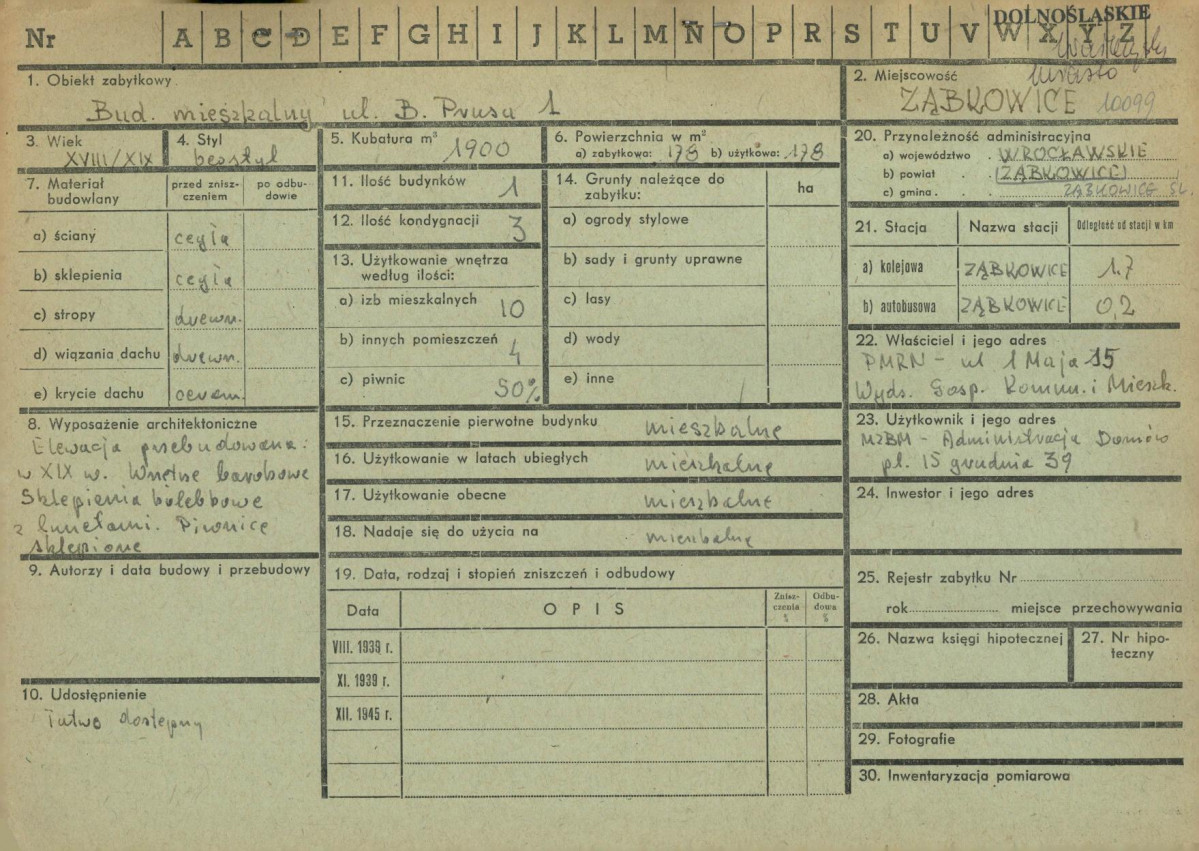 DOLNOŚLĄSKIE
Nr A B C D E F G H I J K L M N O P R S T U V W X Y Z
miasto
1. Obiekt zabytkowy
Bud. mieszkalny ul. B. Prusa 1
2. Miejscowość
ZĄBKOWICE 10099
3. Wiek
XVIII/XIX
4. Styl
bezstyl
5. Kubatura m³
1900
6. Powierzchnia w m²
a) zabytkowa: 178 b) użytkowa: 178
7. Materiał budowlany
przed zniszczeniem
po odbudowie
a) ściany cegła
b) sklepienia cegła
c) stropy drewn.
d) wiązania dachu drewn.
e) krycie dachu
8. Wyposażenie architektoniczne
Elewacja przebudowana:
w XIX w. Wnętrze barokowe
Sklepienia kolebkowe
z lunetami. Piwnice
sklepione
9. Autorzy i data budowy i przebudowy
10. Udostępnienie
Łatwo dostępny
11. Ilość budynków 1
12. Ilość kondygnacji 3
13. Użytkowanie wnętrza
według ilości:
a) izb mieszkalnych 10
b) innych pomieszczeń 4
c) piwnic 50%
14. Grunty należące do
zabytku:
ha
a) ogrody stylowe
b) sady i grunty uprawne
c) lasy
d) wody
e) inne
15. Przeznaczenie pierwotne budynku mieszkalne
16. Użytkowanie w latach ubiegłych mieszkalne
17. Użytkowanie obecne mieszkalne
18. Nadaje się do użycia na mieszkalne
19. Data, rodzaj i stopień zniszczeń i odbudowy
Data OPIS Zniszczenia % Odbudowa %
VIII. 1939 r.
XI. 1939 r.
XII. 1945 r.
20. Przynależność administracyjna
a) województwo WROCŁAWSKIE
b) powiat ZĄBKOWICE
c) gmina ZĄBKOWICE ŚL.
21. Stacja Nazwa stacji Odległość od stacji w km
a) kolejowa ZĄBKOWICE 1.7
b) autobusowa ZĄBKOWICE 0,2
22. Właściciel i jego adres
PMRN - ul 1 Maja 15
Wydz. Gosp. Komun. i Mieszk.
23. Użytkownik i jego adres
MZBM - Administracja Domów
pl. 15 grudnia 39
24. Inwestor i jego adres
25. Rejestr zabytku Nr
rok miejsce przechowywania
26. Nazwa księgi hipotecznej
27. Nr hipoteczny
28. Akta
29. Fotografie
30. Inwentaryzacja pomiarowa